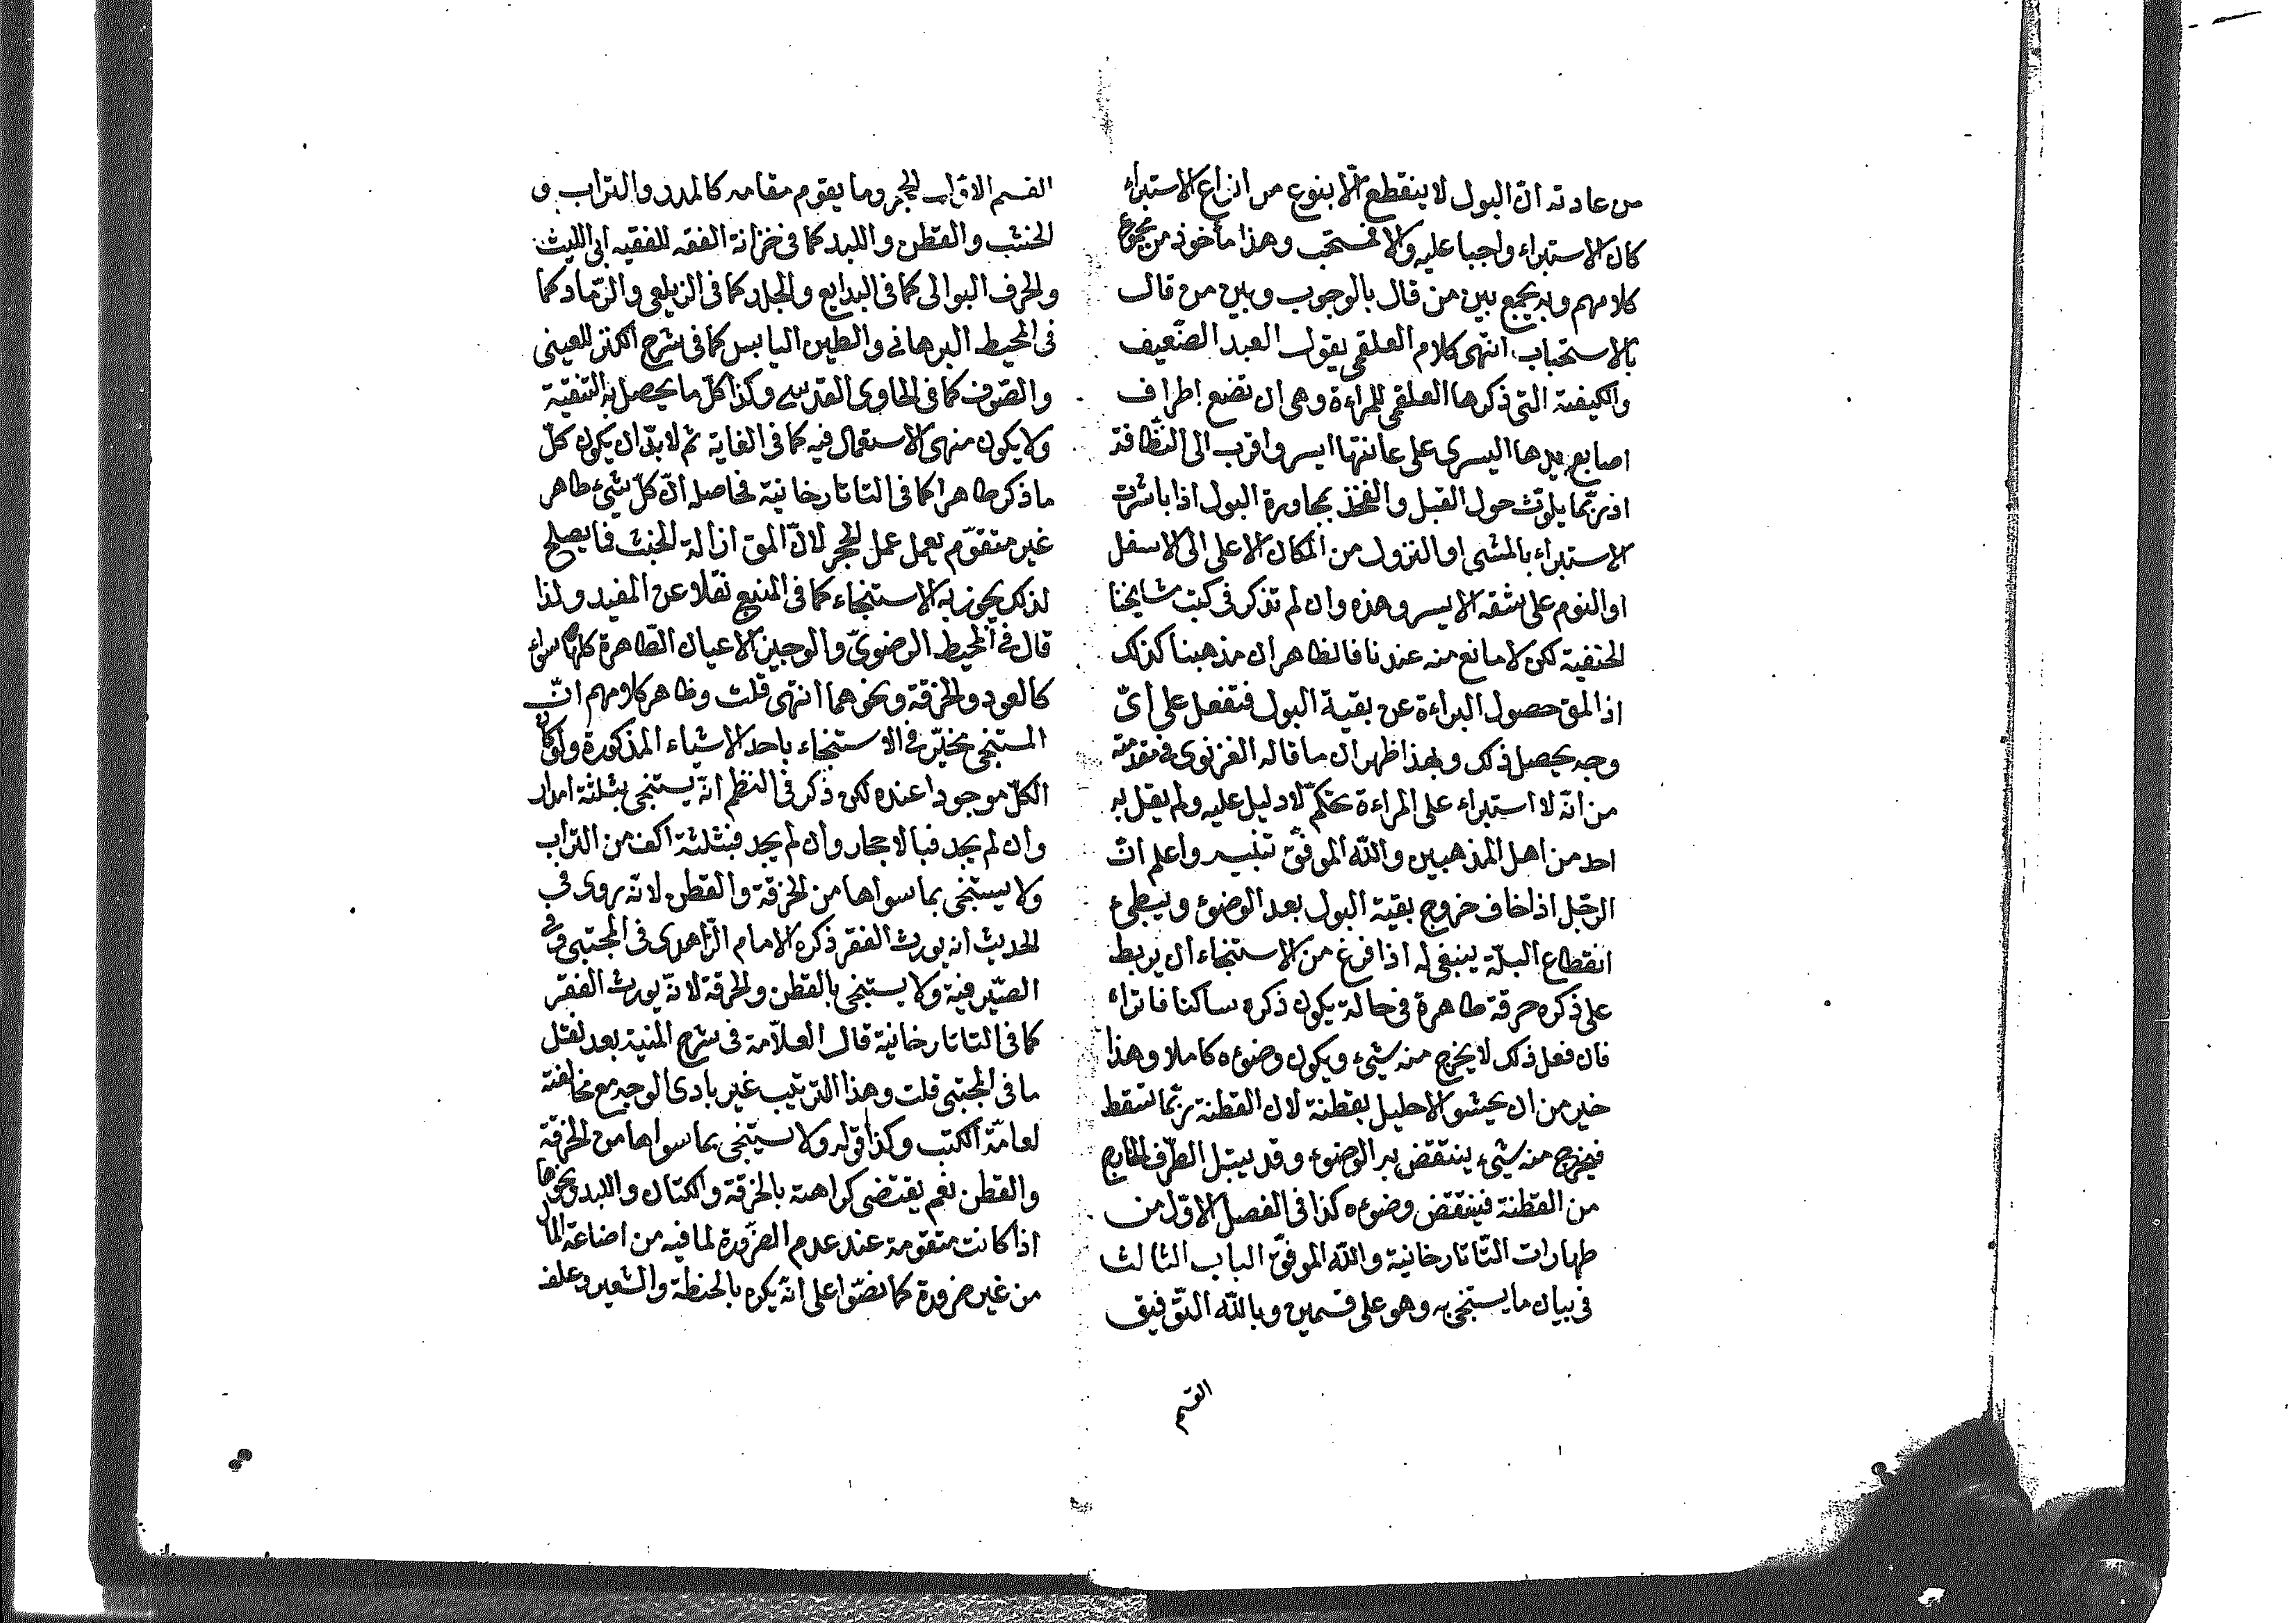 من عادته انّ البول لا ينقطع الّا بنوع من انواع الاستبراء
كان الاستبراء واجبا عليه والا فمستحب وهذا مأخوذ من مجموع
كلامهم وبه يجمع بين من قال بالوجوب وبين من قال
بالاستحباب انتهى كلام العلقمي يقول العبد الضّعيف
والكيفية التى ذكرها العلقمي للمراءة وهى ان تضع اطراف
اصابع يدها اليسرى على عانتها ايسر واقرب الى النّظافة
اذ ربّما يلوّث حول القبل والفخذ بمجاورة البول اذا باشرت
الاستبراء بالمشى او النزول من المكان الاعلى الى الاسفل
او النوم على شقه الايسر وهذه وان لم تذكر فى كتب مشايخنا
الحنفية لكن لا مانع منه عندنا فالظاهر ان مذهبنا كذلك
اذ المق حصول البراءة عن بقية البول فتفعل على اىّ
وجه يحصل ذلك وبهذا ظهر ان ما قاله الغزنوى فى مقدمته
من انّه لا استبراء على المراءة تحكّم لا دليل عليه ولم يقل به
احد من اهل المذهبين والله الموفق تنبيه واعلم انّ
الرجل اذا خاف خروج بقية البول بعد الوضوء ويبطئ
انقطاع البلّة ينبغى له اذا فرغ من الاستنجاء ان يربط
على ذكره خرقة طاهرة فى حالة يكون ذكره ساكنا فاتراء
فان فعل ذلك لا يخرج منه شيء ويكون وضوءه كاملا وهذا
خير من ان يحشو الاحليل بقطنة لان القطنة ربّما تسقط
فيخرج منه شيء ينتقض به الوضوء وقد يبتل الطّرف الخارج
من القطنة فينتقض وضوءه كذا فى الفصل الاوّل من
طهارات التّاتارخانية والله الموفّق الباب الثالث
فى بيان ما يستنجى به وهو على قسمين وبالله التّوفيق
القسم
القسم الاوّل الحجر وما يقوم مقامه كالمدر والتراب و
الخشب والقطن واللبد كما فى خزانة الفقه للفقيه ابى الليث
والخرف البوالى كما فى البدايع والجلد كما فى الزيلعى والرّماد كما
فى المحيط البرهانى والطين اليابس كما فى شرح الكنز للعينى
والصّوف كما فى الحاوى القدسى وكذا كلّ ما يحصل به التنقية
ولا يكون منهى الاستعمال فيه كما فى الغاية ثم لا بدّ ان يكون كلّ
ما ذكر طاهرا كما فى التاتارخانية فحاصله انّ كلّ شيء طاهر
غير متقوّم يعمل عمل الحجر لانّ المق ازالة الخبث فما يصلح
لذلك يجوز به الاستنجاء كما فى المنبع نقلا عن المفيد ولذا
قال فى المحيط الرضوىّ والوجيز الاعيان الطّاهرة كلها سواء
كالعود والخرقة ونحوهما انتهى قلت وظاهر كلامهم انّ
المستنجى مخيّر فى الاستنجاء باحد الاشياء المذكورة ولو كان
الكلّ موجودا عنده لكن ذكر فى النظم انّه يستنجى بثلثة امدار
وان لم يجد فبالاحجار وان لم يجد فبثلثة اكف من التراب
ولا يستنجى بما سواها من الخرقة والقطن لانّه روى فى
الحديث انه يورث الفقر ذكره الامام الزّاهدى فى المجتبى وفى
الصّيرفية ولا يستنجى بالقطن والخرقة لانّه يورث الفقر
كما فى التاتارخانية قال العلّامة فى شرح المنية بعد نقل
ما فى المجتبى قلت وهذا الترتيب غير بادى الوجه مع مخالفته
لعامّة الكتب وكذا قوله ولا يستنجى بما سواها من الخرقة
والقطن نعم يقتضى كراهته بالخرقة والكتان واللبد ونحوها
اذا كانت متقومة عند عدم الضّرورة لما فيه من اضاعة المال
من غير ضرورة كما نصّوا على انّه يكره بالحنطة والشعير وعلف